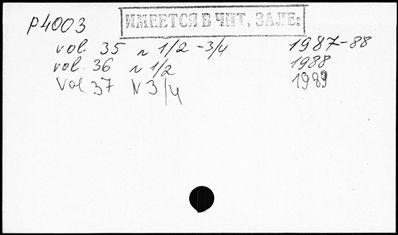 P4003
ИМЕЕТСЯ В ЧИТ. ЗАЛЕ:
vol. 35 N 1/2 - 3/4 1987-88
vol. 36 N 1/2 1988
Vol 37 N 3/4 1989